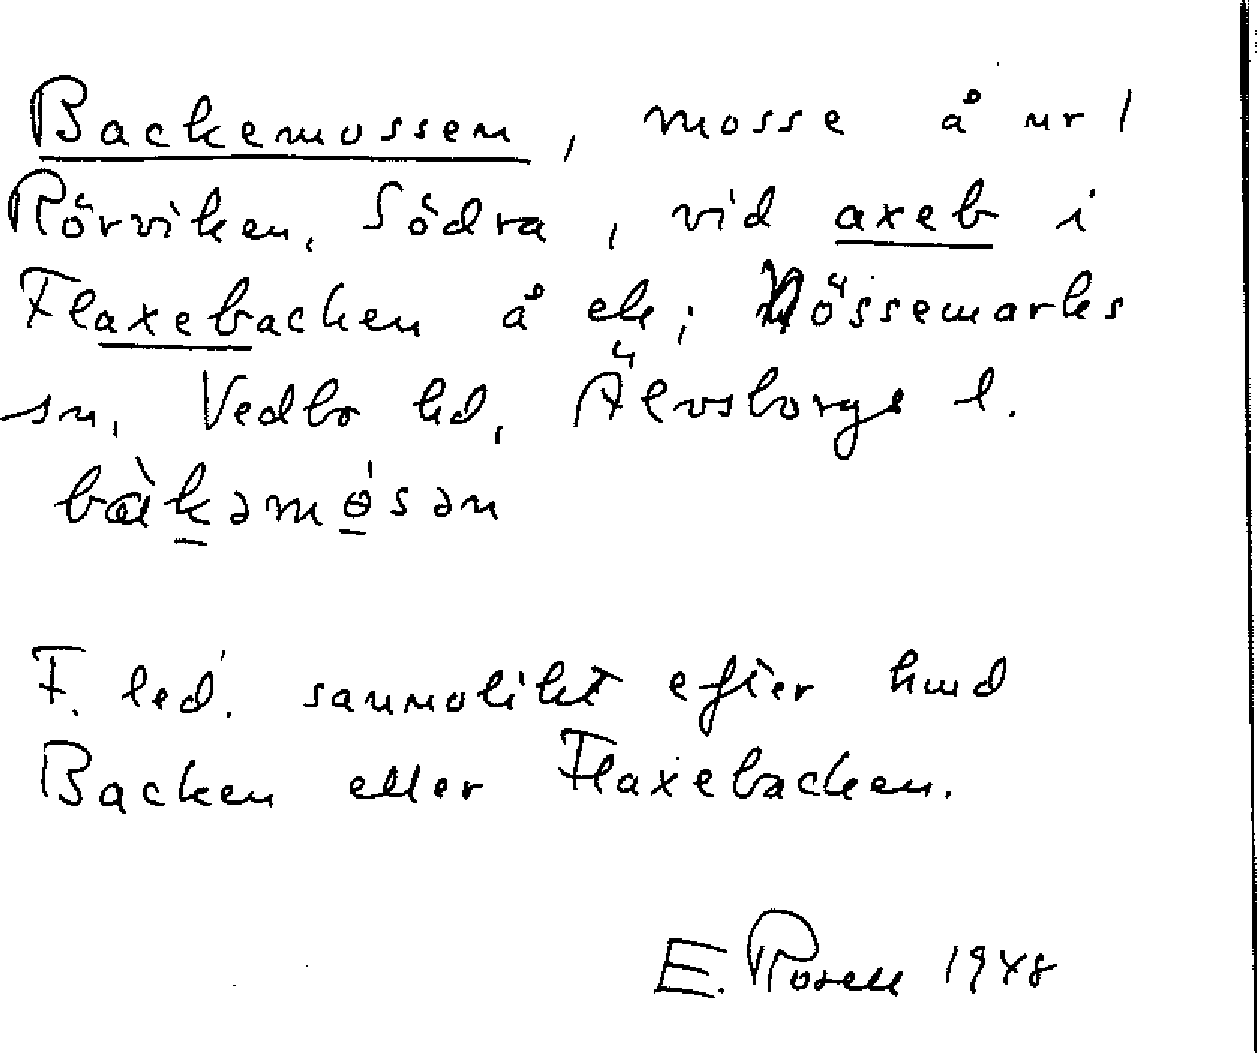 Backemossen, mosse å nr 1
Rörviken, Södra, vid axeb i
Flaxebacken å ek; Nössemarks
sn, Vedbo hd, Älvsborgs l.
bàkəmɵ́sən
F. led. sannolikt efter hmd
Backen eller Flaxebacken.
E. Rosell 1948